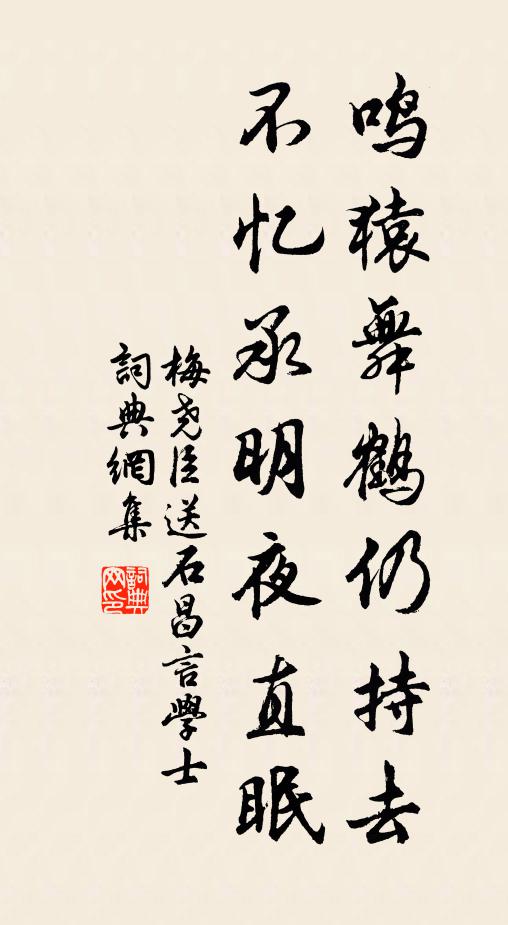 鸣猿舞鹤仍持去
不忆承明夜直眠
梅尧臣送石昌言學士
詞典網集
詞典
网印